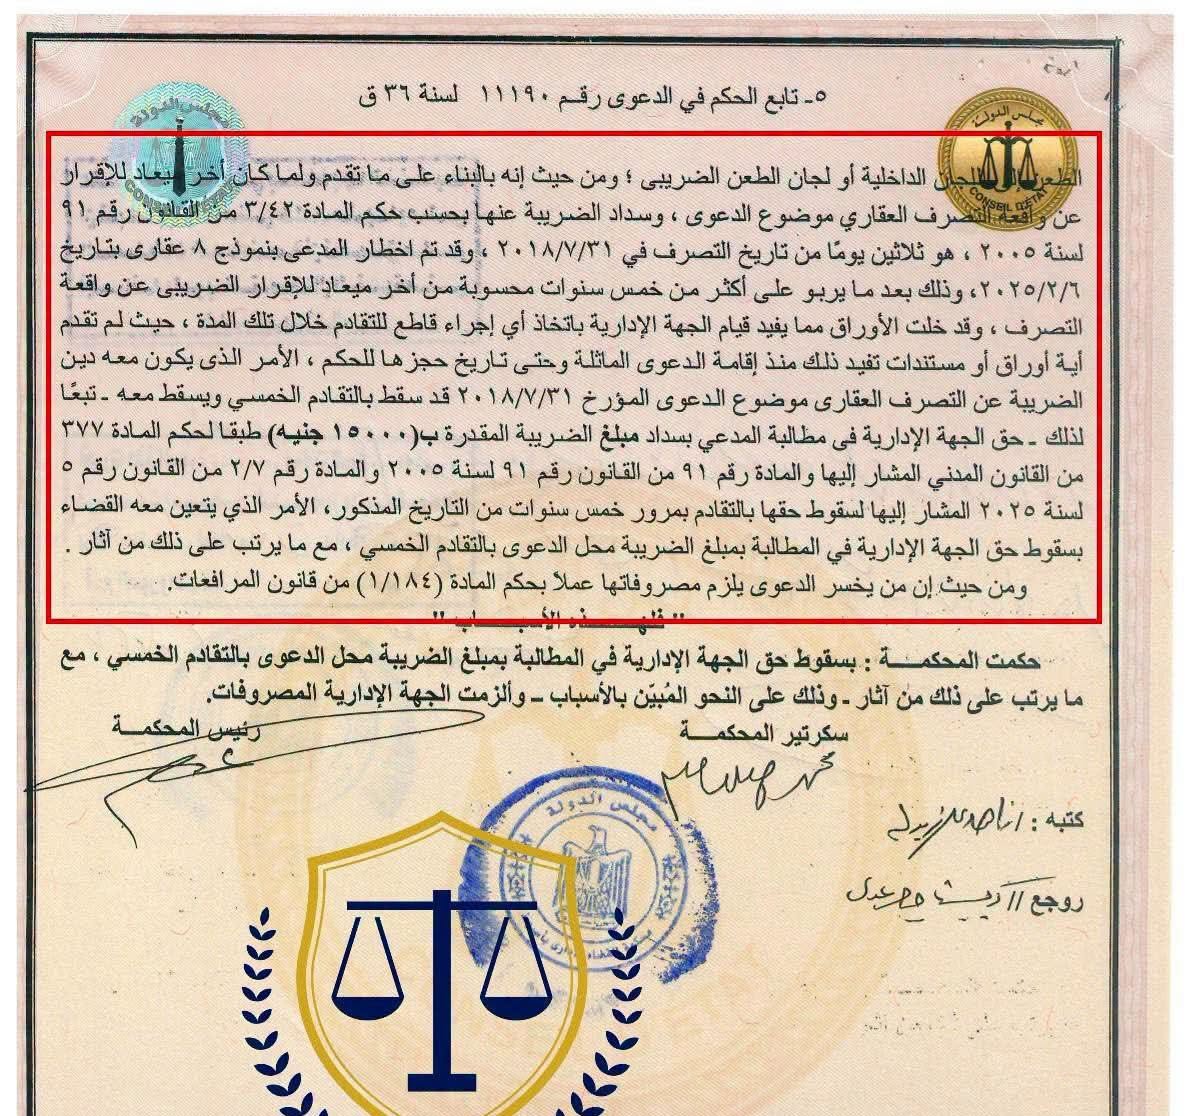 ٥- تابع الحكم في الدعوى رقم ١١١٩٠ لسنة ٣٦ ق
مجلس الدولة
مجلس الدولة
CONSEIL D'ETAT
الطعن اللجان الداخلية أو لجان الطعن الضريبى ؛ ومن حيث إنه بالبناء على ما تقدم ولما كان أخر ميعاد للإقرار
عن واقعة التصرف العقاري موضوع الدعوى ، وسداد الضريبة عنها بحسب حكم المادة ٣/٤٢ من القانون رقم ٩١
لسنة ٢٠٠٥ ، هو ثلاثين يومًا من تاريخ التصرف في ٢٠١٨/٧/٣١ ، وقد تم اخطار المدعى بنموذج ٨ عقارى بتاريخ
٢٠٢٥/٢/٦، وذلك بعد ما يربو على أكثر من خمس سنوات محسوبة من أخر ميعاد للإقرار الضريبى عن واقعة
التصرف ، وقد خلت الأوراق مما يفيد قيام الجهة الإدارية باتخاذ أي إجراء قاطع للتقادم خلال تلك المدة ، حيث لم تقدم
أية أوراق أو مستندات تفيد ذلك منذ إقامة الدعوى الماثلة وحتى تاريخ حجزها للحكم ، الأمر الذى يكون معه دين
الضريبة عن التصرف العقارى موضوع الدعوى المؤرخ ٢٠١٨/٧/٣١ قد سقط بالتقادم الخمسي ويسقط معه ـ تبعًا
لذلك ـ حق الجهة الإدارية فى مطالبة المدعي بسداد مبلغ الضريبة المقدرة ب(١٥٠٠٠ جنيه) طبقا لحكم المادة ٣٧٧
من القانون المدني المشار إليها والمادة رقم ٩١ من القانون رقم ٩١ لسنة ٢٠٠٥ والمادة رقم ٢/٧ من القانون رقم ٥
لسنة ٢٠٢٥ المشار إليها لسقوط حقها بالتقادم بمرور خمس سنوات من التاريخ المذكور، الأمر الذي يتعين معه القضاء
بسقوط حق الجهة الإدارية في المطالبة بمبلغ الضريبة محل الدعوى بالتقادم الخمسي ، مع ما يرتب على ذلك من آثار .
ومن حيث إن من يخسر الدعوى يلزم مصروفاتها عملاً بحكم المادة (١/١٨٤) من قانون المرافعات.
"فلهــــذه الأسبـــاب"
حكمت المحكمــــة : بسقوط حق الجهة الإدارية في المطالبة بمبلغ الضريبة محل الدعوى بالتقادم الخمسي ، مع
ما يرتب على ذلك من آثار ـ وذلك على النحو المُبيّن بالأسباب ــ وألزمت الجهة الإدارية المصروفات.
سكرتير المحكمــة
رئيس المحكمــة
مجلس الدولة
كتبه :
روجع